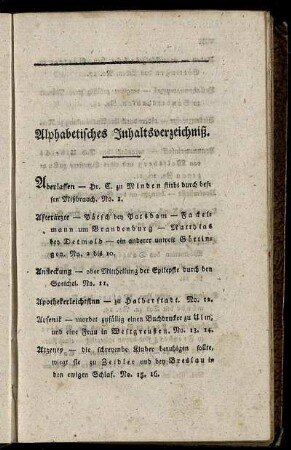 Alphabetisches Inhaltsverzeichniß.
Aderlassen — Hr. C. zu Minden stirbt durch des-
sen Mißbrauch. No. 1.
Afterärzte — Pötsch bey Potsdam — Fackel-
mann um Brandenburg — Matthias
bey Detmold — ein anderer unweit Göttin-
gen. No. 2 bis 10.
Ansteckung — oder Mittheilung der Epilepsie durch den
Speichel. No. 11.
Apothekerleichtsinn — zu Halberstadt. No. 12.
Arsenik — mordet zufällig einen Buchdrucker zu Ulm,
und eine Frau in Westgreußen. No. 13. 14.
Arzeney — die schreyende Kinder beruhigen sollte,
wiegt sie zu Zeidler und bey Breslau in
den ewigen Schlaf. No. 15. 16.